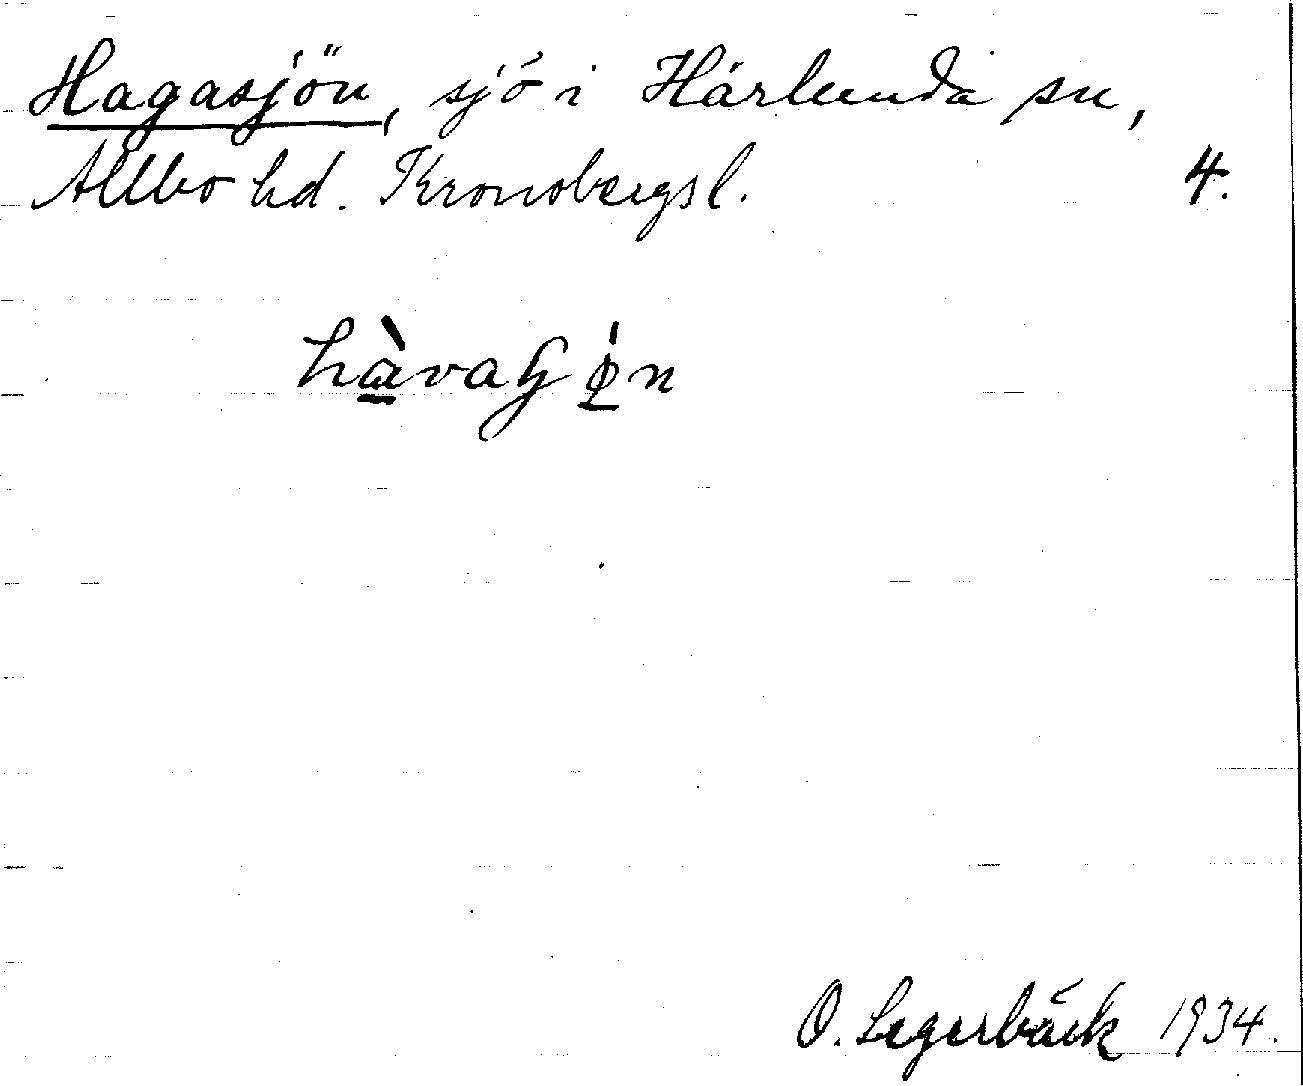 Hagasjön, sjö i Härlunda sn,
Allbo hd. Kronobergs l. 4.
hàvaʃǿn
O. Segerbäck 1934.